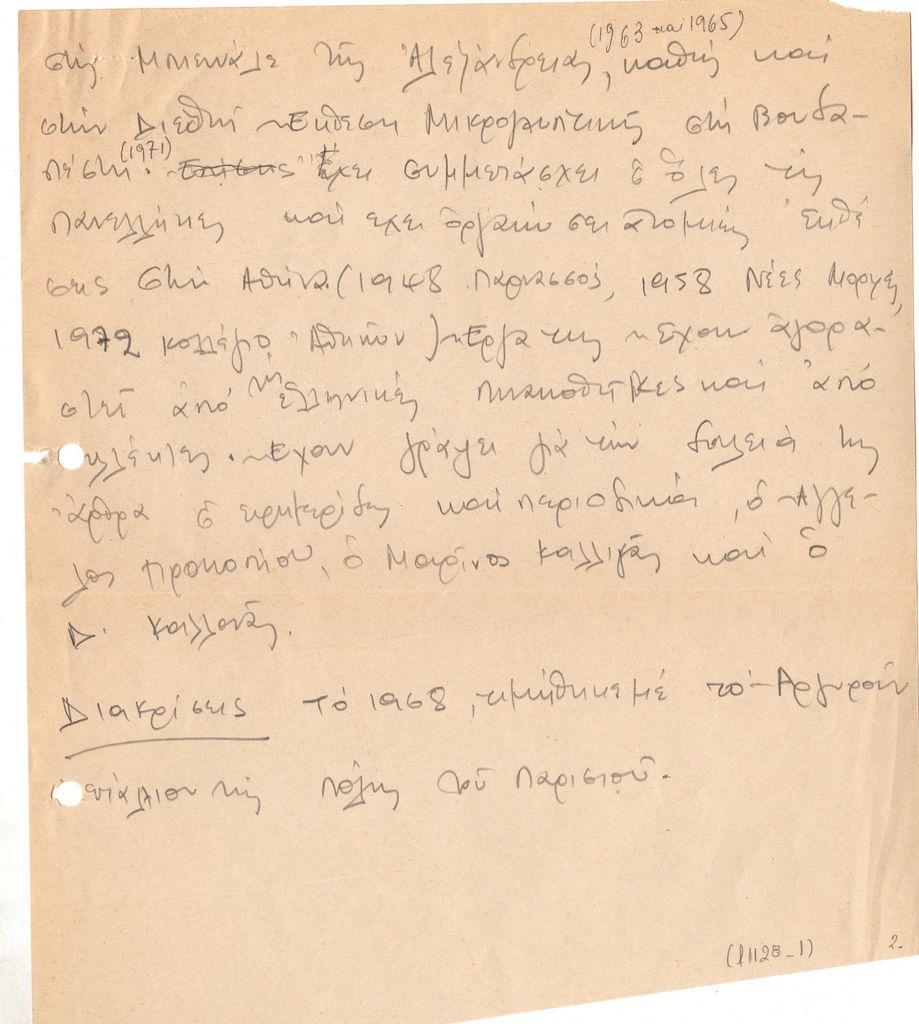 (1963 καί 1965)
στίς Μπιενάλε τῆς Ἀλεξάνδρειας, καθώς καί
στήν Διεθνῆ Ἔκθεση Μικρογλυπτικῆς στή Βουδα-
πέστη. (1971) Ἐπίσης Ἔχει συμμετάσχει σ' ὅλες τίς
Πανελλήνιες καί ἔχει ὀργανώσει ἀτομικές ἐκθέ
σεις στήν Ἀθήνα (1948 Παρνασσός, 1958 Νέες Μορφές,
1972 Κολλέγιο Ἀθηνῶν) Ἔργα της ἔχουν ἀγορα-
στεῖ ἀπό τίς ἑλληνικές πινακοθῆκες καί ἀπό
συλλέκτες. Ἔχουν γράψει γιά τήν δουλειά της
ἄρθρα σ' ἐφημερίδες καί περιοδικά, ὁ Ἄγγε-
λος Προκοπίου, ὁ Μαρίνος Καλλιγᾶς καί ὁ
Δ. Καλλονάς.
Διακρίσεις Τό 1968, τιμήθηκε μέ τό Ἀργυροῦν
μετάλλιον τῆς πόλης τοῦ Παρισιοῦ.
(l1128_1) 2.